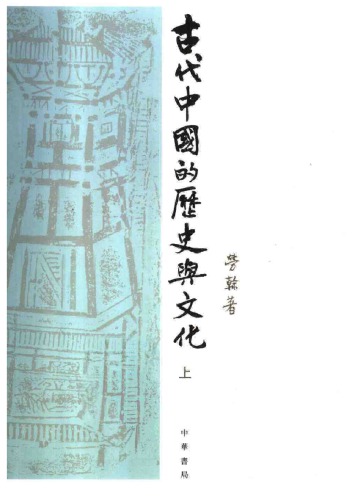 古代中國的歷史與文化
上
勞榦著
中華書局